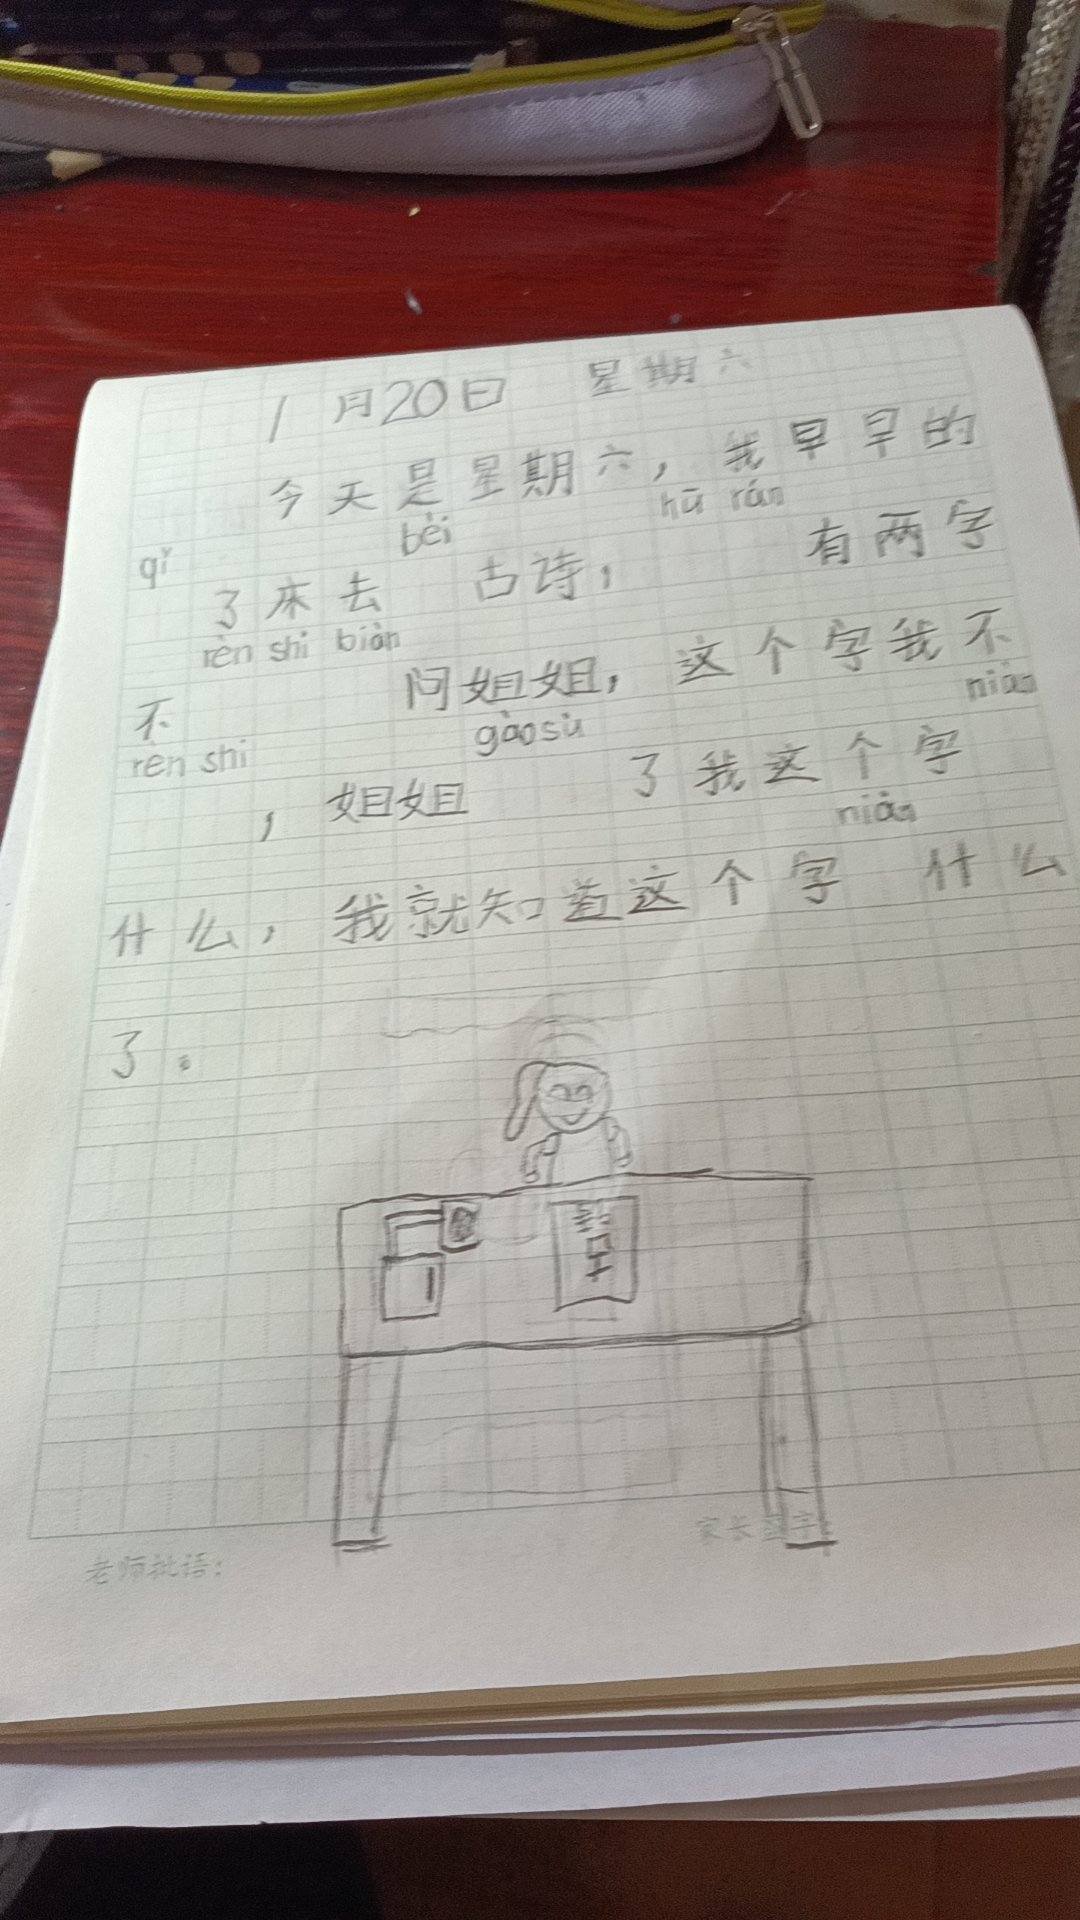 1月20日 星期六
今天是星期六，我早早的
bèi hū rán
qǐ
了床去 古诗， 有两字
rèn shi biàn
不 问姐姐，这个字我不
rèn shi gàosù niàn
，姐姐 了我这个字
niàn
什么，我就知道这个字 什么
了。
诗
字
老师批语：
家长签字：